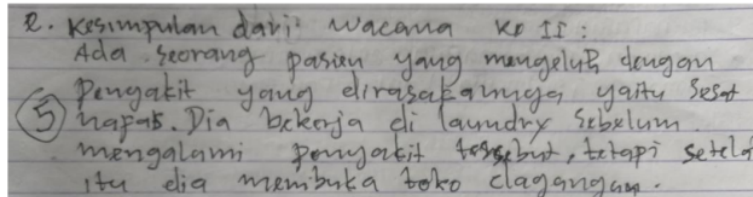 2. Kesimpulan dari wacana ke II :
Ada seorang pasien yang mengeluh dengan
penyakit yang dirasakannya, yaitu sesat
5 napas. Dia bekerja di laundry sebelum
mengalami penyakit tersebut, tetapi setela
itu dia membuka toko dagangan.